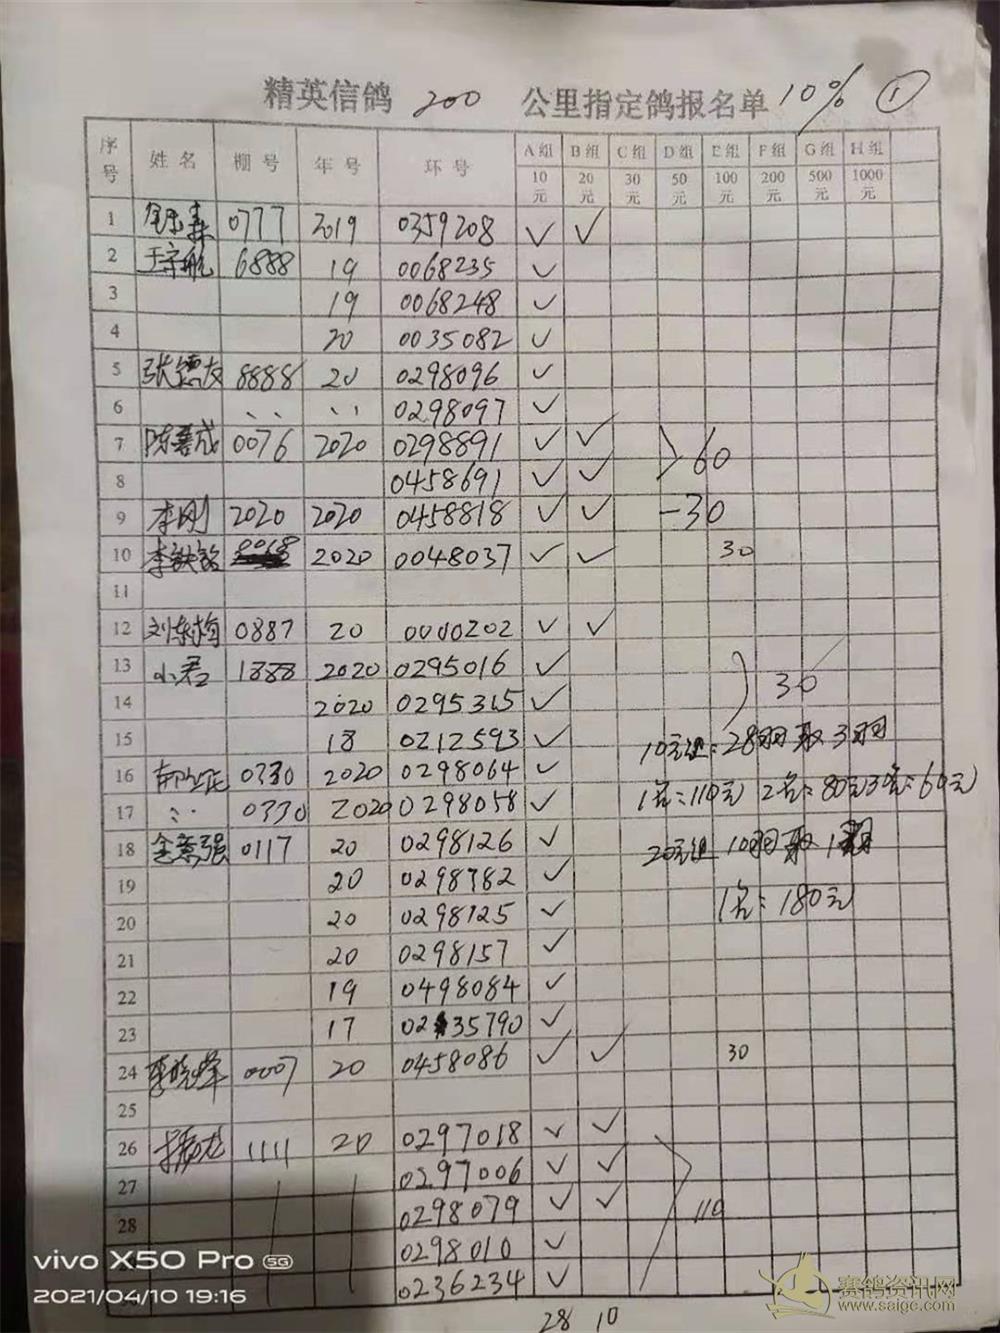 精英信鸽 200 公里指定鸽报名单 10% ①
序号 姓名 棚号 年号 环号 A组 B组 C组 D组 E组 F组 G组 H组
10元 20元 30元 50元 100元 200元 500元 1000元
1 0777 2019 0359208 ✓ ✓
2 6888 19 0068235 ✓
3 19 0068248 ✓
4 20 0035082 ✓
5 张德友 8888 20 0298096 ✓
6 、、 、、 0298097 ✓
7 陈善成 0076 2020 0298891 ✓ ✓ 60
8 0458691 ✓ ✓
9 李刚 2020 2020 0458818 ✓ ✓ -30
10 李铁铭 0068 2020 0048037 ✓ ✓ 30
11
12 刘东梅 0887 20 0000202 ✓ ✓
13 小君 1888 2020 0295016 ✓
14 2020 0295315 ✓ 30
15 18 0212593 ✓ 10元组:28羽取3羽
16 0330 2020 0298064 ✓
17 、、 0330 2020 0298058 ✓ 1名:110元 2名:80元 3名:60元
18 金慧强 0117 20 0298126 ✓ 20元组 10羽取1羽
19 20 0298782 ✓
20 20 0298125 ✓ 1名:180元
21 20 0298157 ✓
22 19 0498084 ✓
23 17 02 35790 ✓
24 李晓峰 0007 20 0458086 ✓ ✓ 30
25
26 1111 20 0297018 ✓ ✓
27 0297006 ✓ ✓
28 0298079 ✓ ✓ 110
0298010 ✓
0236234 ✓
28 10
vivo X50 Pro 5G
2021/04/10 19:16
赛鸽资讯网
www.saigc.com